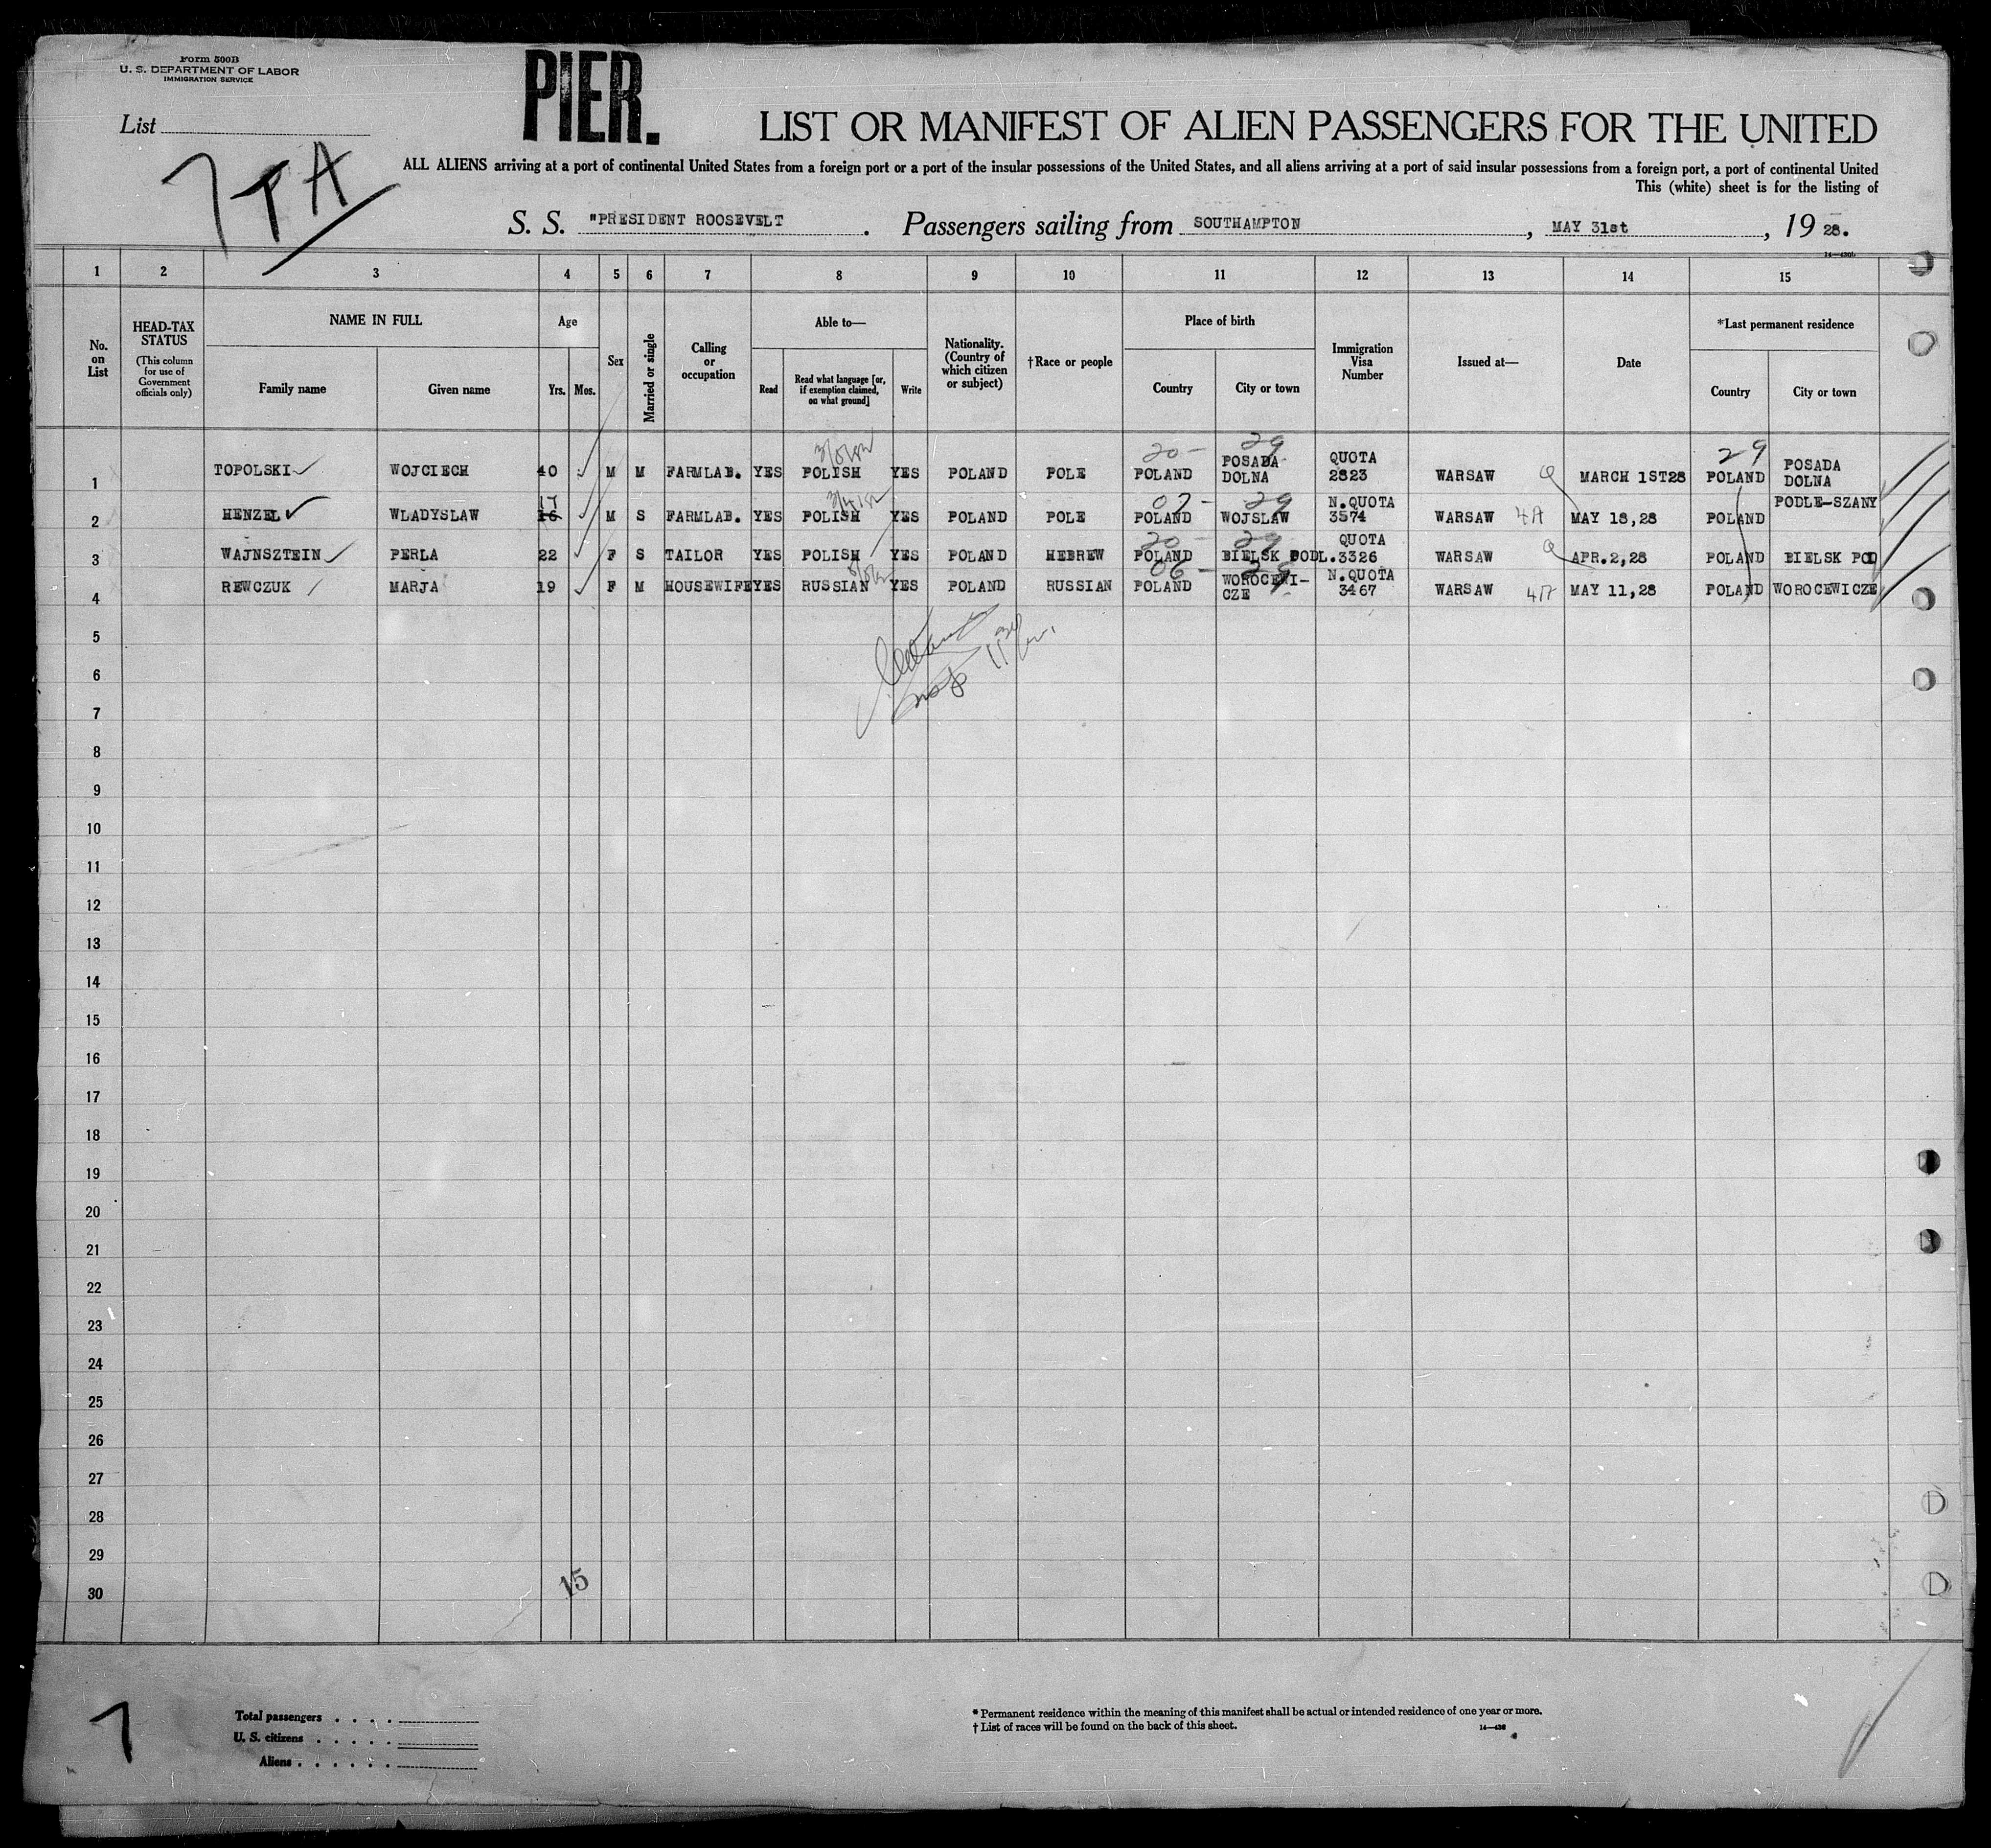 Form 500B
U. S. DEPARTMENT OF LABOR
IMMIGRATION SERVICE
PIER.
List
7 T A
LIST OR MANIFEST OF ALIEN PASSENGERS FOR THE UNITED
ALL ALIENS arriving at a port of continental United States from a foreign port or a port of the insular possessions of the United States, and all aliens arriving at a port of said insular possessions from a foreign port, a port of continental United
This (white) sheet is for the listing of
S. S. "PRESIDENT ROOSEVELT . Passengers sailing from SOUTHAMPTON , MAY 31st , 19 28.
1 2 3 4 5 6 7 8 9 10 11 12 13 14 15
No. on List
HEAD-TAX STATUS
(This column for use of Government officials only)
NAME IN FULL
Family name Given name
Age
Yrs. Mos.
Sex
Married or single
Calling or occupation
Able to—
Read
Read what language [or, if exemption claimed, on what ground]
Write
Nationality. (Country of which citizen or subject)
†Race or people
Place of birth
Country City or town
Immigration Visa Number
Issued at—
Date
*Last permanent residence
Country City or town
20- 29 29
1 TOPOLSKI WOJCIECH 40 M M FARMLAB. YES POLISH YES POLAND POLE POLAND POSADA DOLNA QUOTA 2823 WARSAW Q MARCH 1ST28 POLAND POSADA DOLNA
07- 29
2 HENZEL WLADYSLAW 17 16 M S FARMLAB. YES POLISH YES POLAND POLE POLAND WOJSLAW N.QUOTA 3574 WARSAW 4A MAY 18,28 POLAND PODLE-SZANY
20- 29
3 WAJNSZTEIN PERLA 22 F S TAILOR YES POLISH YES POLAND HEBREW POLAND BIELSK PODL. QUOTA 3326 WARSAW Q APR.2,28 POLAND BIELSK POD
06- 29
4 REWCZUK MARJA 19 F M HOUSEWIFE YES RUSSIAN YES POLAND RUSSIAN POLAND WOROCEWI-CZE N.QUOTA 3467 WARSAW 4A MAY 11,28 POLAND WOROCEWICZE
5
6
7
8
9
10
11
12
13
14
15
16
17
18
19
20
21
22
23
24
25
26
27
28
29
30
15
7
Total passengers . . . .
U. S. citizens . . . . .
Aliens . . . . . .
* Permanent residence within the meaning of this manifest shall be actual or intended residence of one year or more.
† List of races will be found on the back of this sheet.